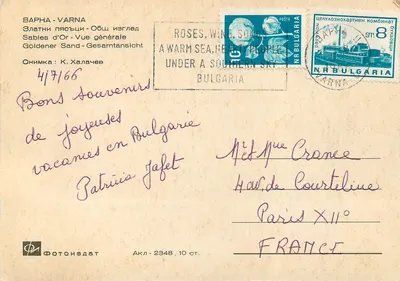 ВАРНА - VARNA
Златни пясъци - Общ изглед
Sables d'Or - Vue générale
Goldener Sand - Gesamtansicht
Снимка : К. Халачев
4/7/66
Bons souvenirs
de joyeuses
vacances en Bulgarie
Patricia Jafet
ROSES, WINE, SONG
A WARM SEA, HEARTY PEOPLE
UNDER A SOUTHERN SKY
BULGARIA
NR BULGARIA
ЦЕЛУЛОЗНОХАРТИЕН КОМБИНАТ
СТ. 8
NR BULGARIA
VARNA
Mr et Mme Crance
4 av. de Courteline
Paris XII°
FRANCE
Фотоиздат
Акл - 2348, 10 ст.